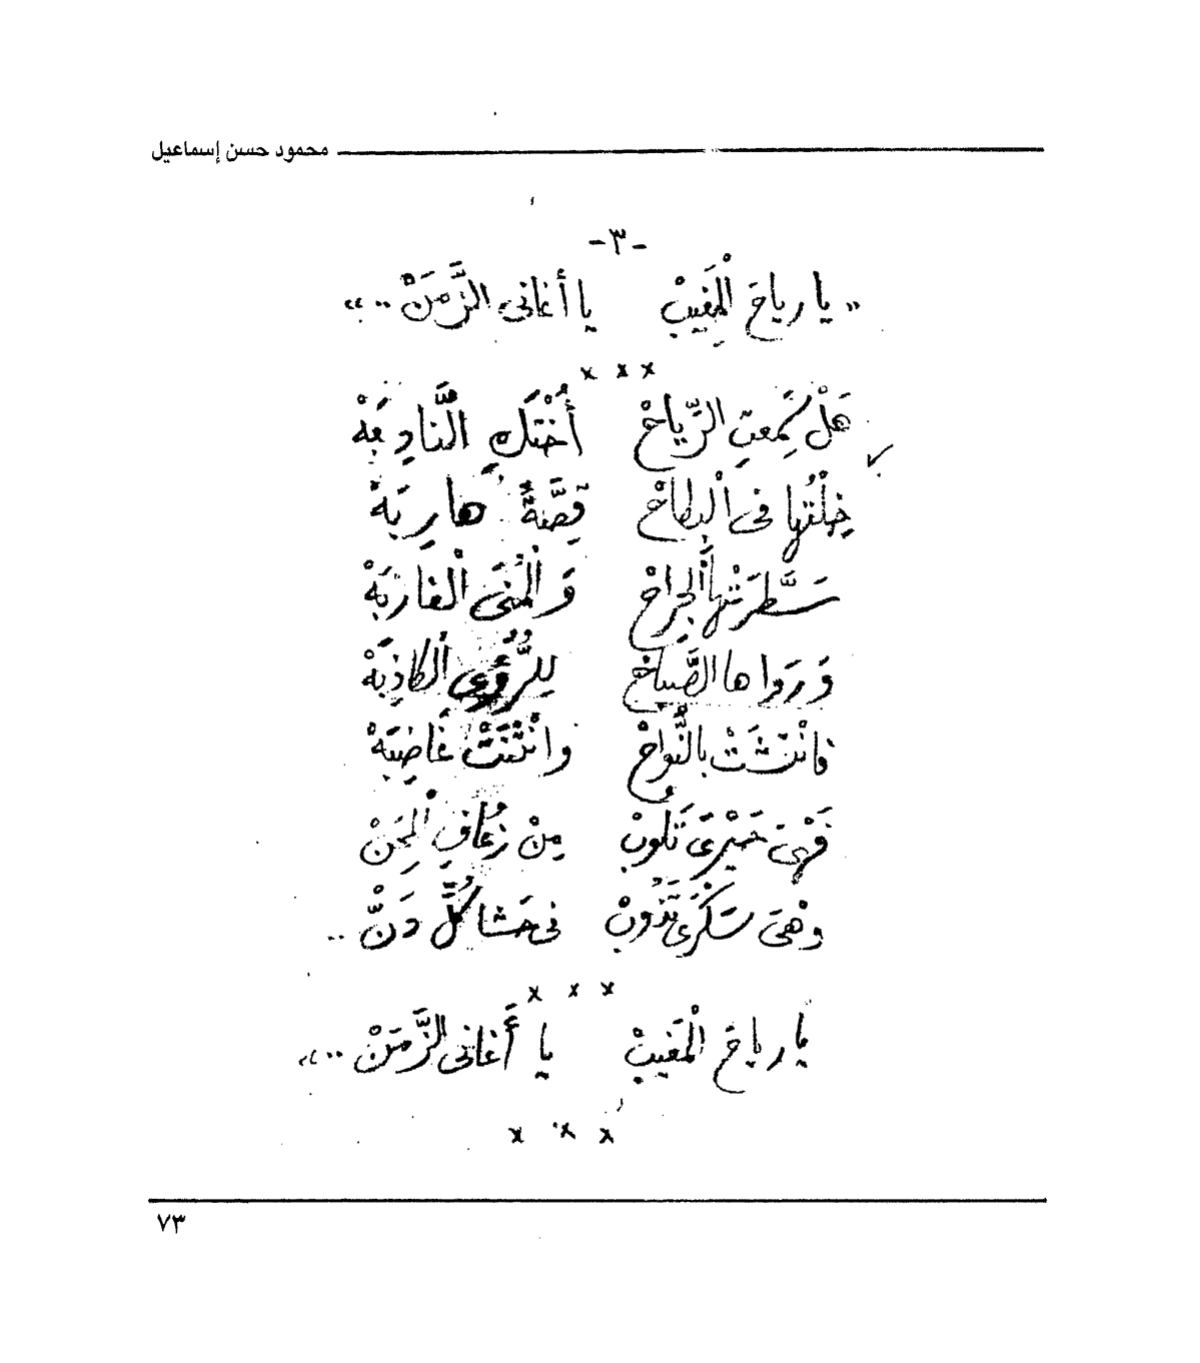 محمود حسن إسماعيل
-٣-
« يا رياحَ الْمَغِيبْ يا أغانى الزَّمَنْ .. »
x x x
هَلْ سَمِعتِ الرِّياحْ أُخْتَكِ النَّادِبَهْ
خِلْتُها فى الْبطاحْ قِصَّةً هارِبَهْ
سَطَّرَتْها الجِراحْ وَالْمُنَى الْغارِبَهْ
وَرَوَاها الصَّباحْ لِلرُّؤَى الكاذِبَهْ
فانْتَشَتْ بالنُّواحْ وانْثَنَتْ غَاضِبَهْ
فَهْىَ حَيْرَى تَلُوبْ مِنْ زُعافِ الْمِحَنْ
وَهْىَ سَكْرَى تَذُوبْ فى حَشا كُلِّ دَنّْ ..
x x x
يا رياحَ الْمَغيبْ يا أَغانى الزَّمَنْ .. »
x x x
٧٣